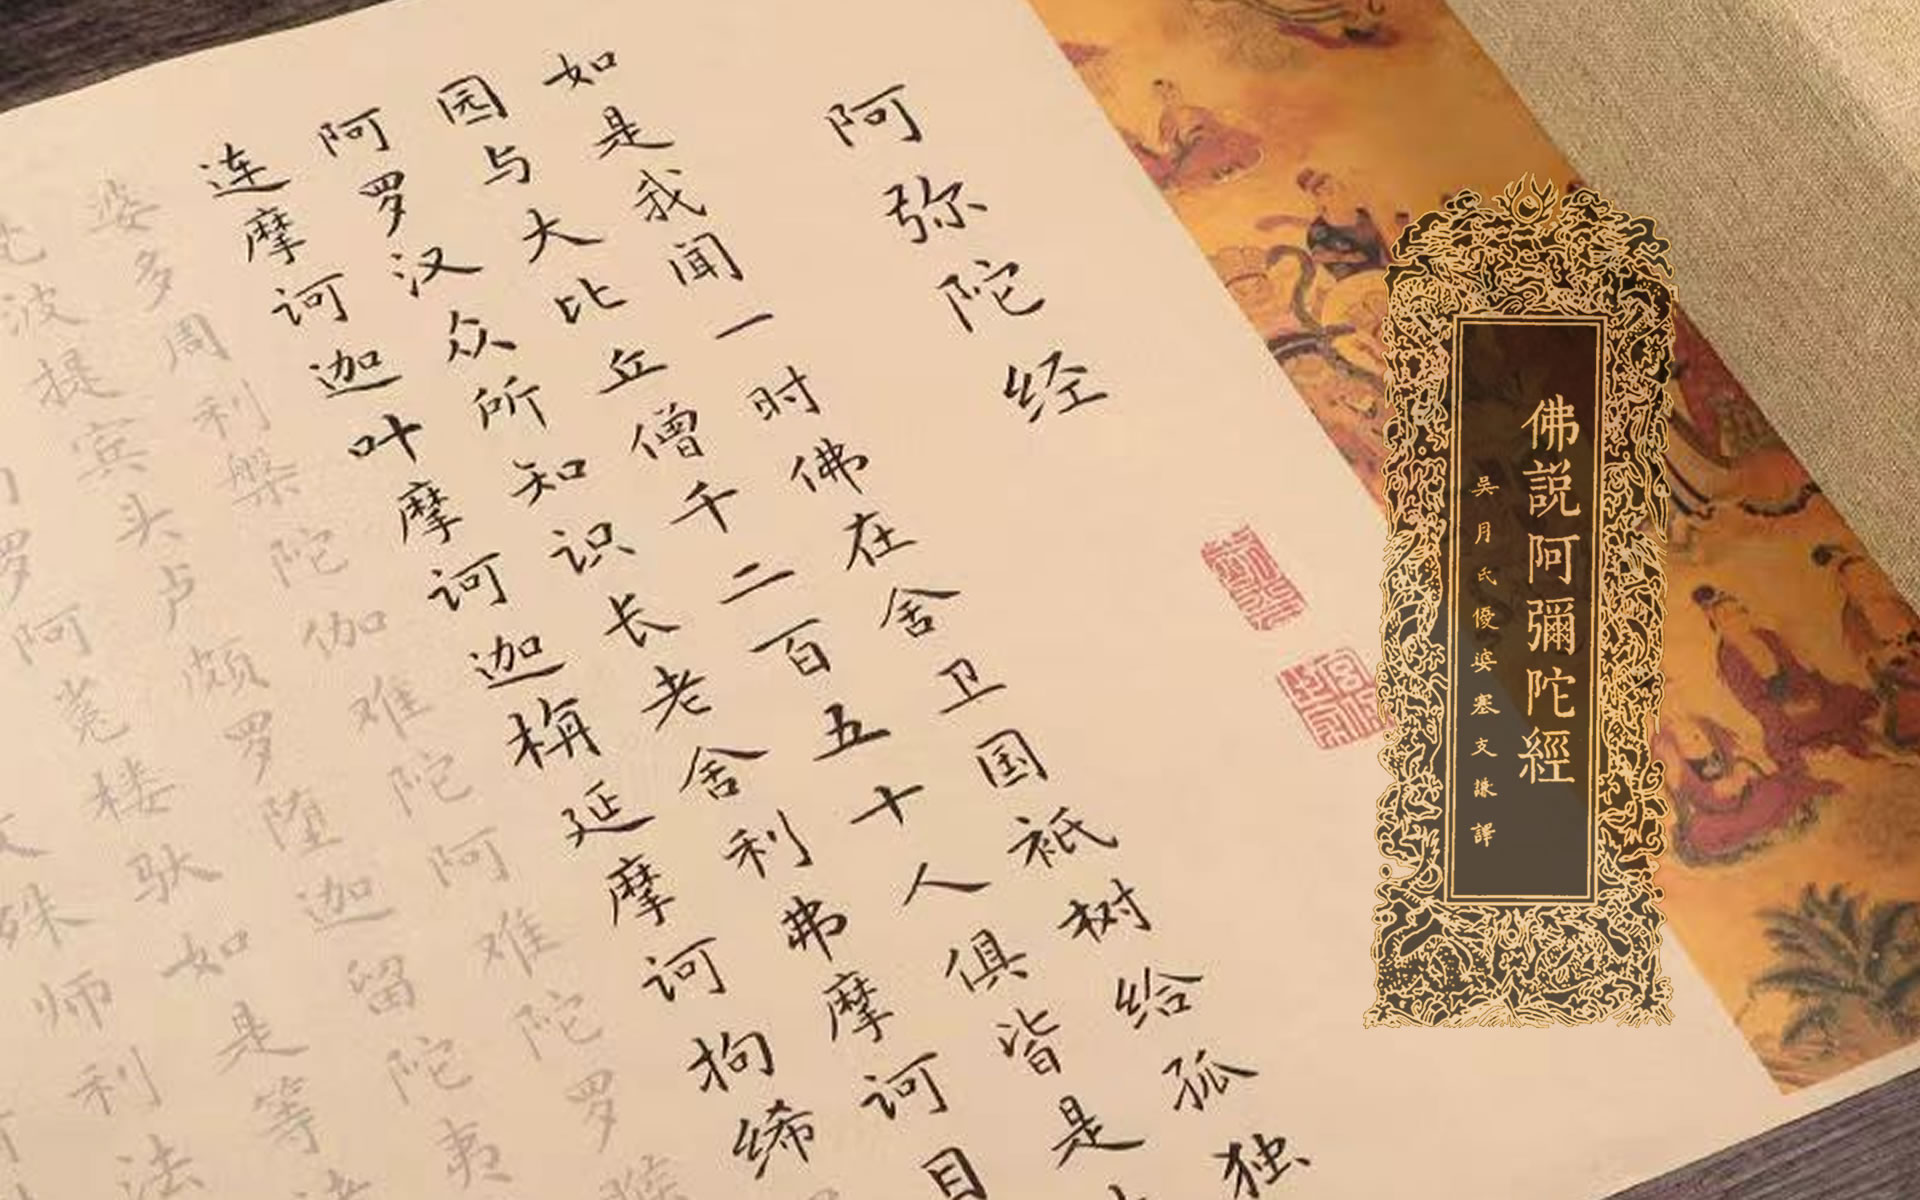 佛説阿彌陀經
吳月氏優婆塞支謙譯
阿弥陀经
如是我闻一时佛在舍卫国祇树给孤独
园与大比丘僧千二百五十人俱皆是
阿罗汉众所知识长老舍利弗摩诃目
连摩诃迦叶摩诃迦栴延摩诃拘絺
婆多周利槃陀伽难陀阿难陀罗睺
波提宾头卢颇罗堕迦留陀夷
罗阿菟楼驮如是等诸
文殊师利法